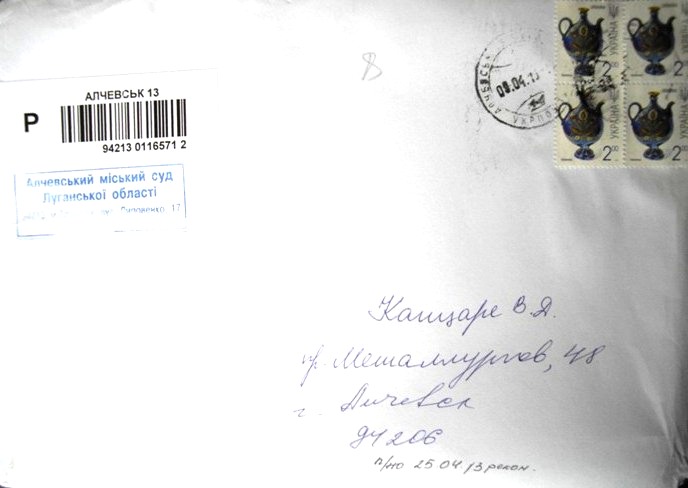 АЛЧЕВСЬК 13
Р
94213 0116571 2
Алчевський міський суд
Луганської області
17
8
09.04.13
УКРПОШ
УКРАЇНА
2
УКРАЇНА
2
УКРАЇНА
2 00
УКРАЇНА
2 00
Кащаре В.Д.
пр. Металлургов, 48
г. Алчевск
94206
25.04 13 реком.